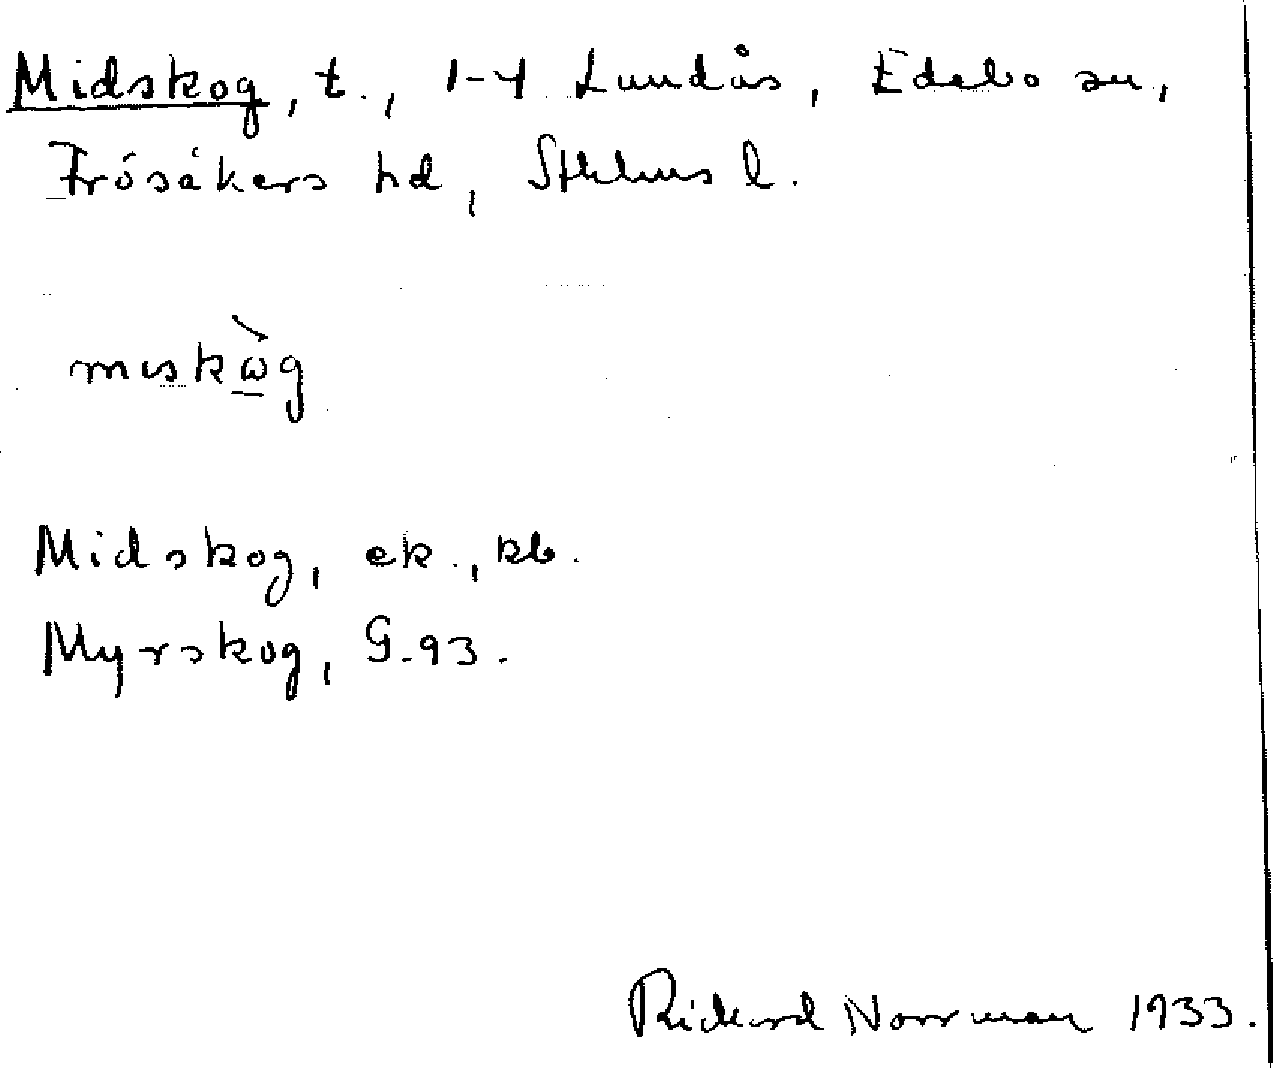 Midskog, t., 1-4 Lundås, Edebo sn,
Frösåkers hd, Sthlms l.
mɩskὼg
Midskog, ek., kb.
Myrskog, G-93.
Rickard Norrman 1933.